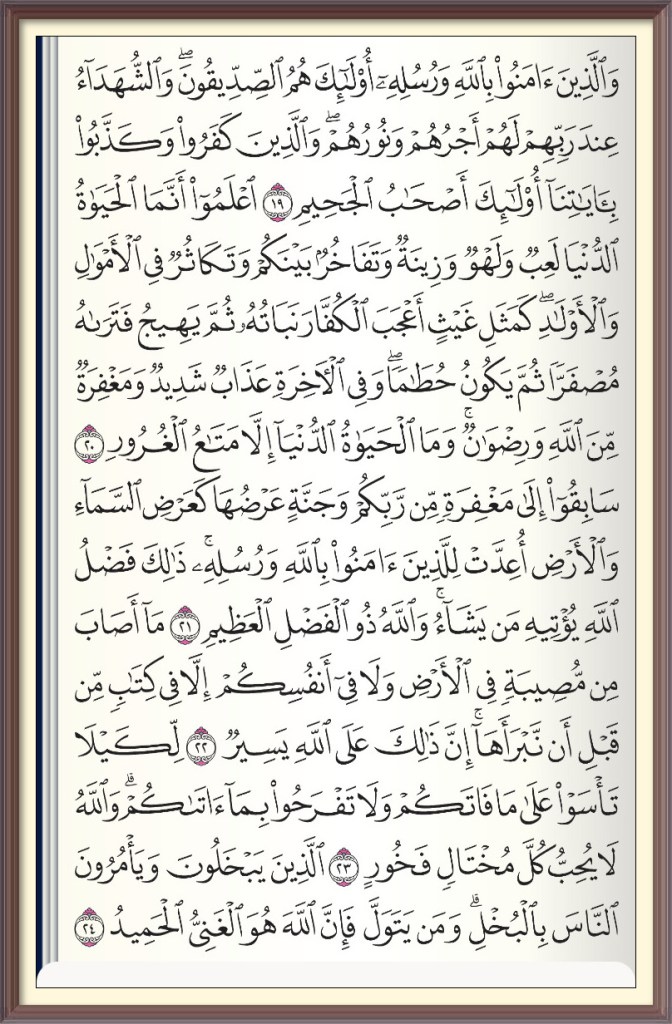 وَٱلَّذِينَ ءَامَنُوا۟ بِٱللَّهِ وَرُسُلِهِۦٓ أُو۟لَـٰٓئِكَ هُمُ ٱلصِّدِّيقُونَۖ وَٱلشُّهَدَآءُ
عِندَ رَبِّهِمْ لَهُمْ أَجْرُهُمْ وَنُورُهُمْۖ وَٱلَّذِينَ كَفَرُوا۟ وَكَذَّبُوا۟
بِـَٔايَـٰتِنَآ أُو۟لَـٰٓئِكَ أَصْحَـٰبُ ٱلْجَحِيمِ ١٩ ٱعْلَمُوٓا۟ أَنَّمَا ٱلْحَيَوٰةُ
ٱلدُّنْيَا لَعِبٌ وَلَهْوٌ وَزِينَةٌ وَتَفَاخُرٌۢ بَيْنَكُمْ وَتَكَاثُرٌ فِى ٱلْأَمْوَٰلِ
وَٱلْأَوْلَـٰدِۖ كَمَثَلِ غَيْثٍ أَعْجَبَ ٱلْكُفَّارَ نَبَاتُهُۥ ثُمَّ يَهِيجُ فَتَرَىٰهُ
مُصْفَرًّا ثُمَّ يَكُونُ حُطَـٰمًاۖ وَفِى ٱلْـَٔاخِرَةِ عَذَابٌ شَدِيدٌ وَمَغْفِرَةٌ
مِّنَ ٱللَّهِ وَرِضْوَٰنٌۚ وَمَا ٱلْحَيَوٰةُ ٱلدُّنْيَآ إِلَّا مَتَـٰعُ ٱلْغُرُورِ ٢٠
سَابِقُوٓا۟ إِلَىٰ مَغْفِرَةٍ مِّن رَّبِّكُمْ وَجَنَّةٍ عَرْضُهَا كَعَرْضِ ٱلسَّمَآءِ
وَٱلْأَرْضِ أُعِدَّتْ لِلَّذِينَ ءَامَنُوا۟ بِٱللَّهِ وَرُسُلِهِۦۚ ذَٰلِكَ فَضْلُ
ٱللَّهِ يُؤْتِيهِ مَن يَشَآءُۚ وَٱللَّهُ ذُو ٱلْفَضْلِ ٱلْعَظِيمِ ٢١ مَآ أَصَابَ
مِن مُّصِيبَةٍ فِى ٱلْأَرْضِ وَلَا فِىٓ أَنفُسِكُمْ إِلَّا فِى كِتَـٰبٍ مِّن
قَبْلِ أَن نَّبْرَأَهَآۚ إِنَّ ذَٰلِكَ عَلَى ٱللَّهِ يَسِيرٌ ٢٢ لِّكَيْلَا
تَأْسَوْا۟ عَلَىٰ مَا فَاتَكُمْ وَلَا تَفْرَحُوا۟ بِمَآ ءَاتَىٰكُمْۗ وَٱللَّهُ
لَا يُحِبُّ كُلَّ مُخْتَالٍ فَخُورٍ ٢٣ ٱلَّذِينَ يَبْخَلُونَ وَيَأْمُرُونَ
ٱلنَّاسَ بِٱلْبُخْلِۗ وَمَن يَتَوَلَّ فَإِنَّ ٱللَّهَ هُوَ ٱلْغَنِىُّ ٱلْحَمِيدُ ٢٤